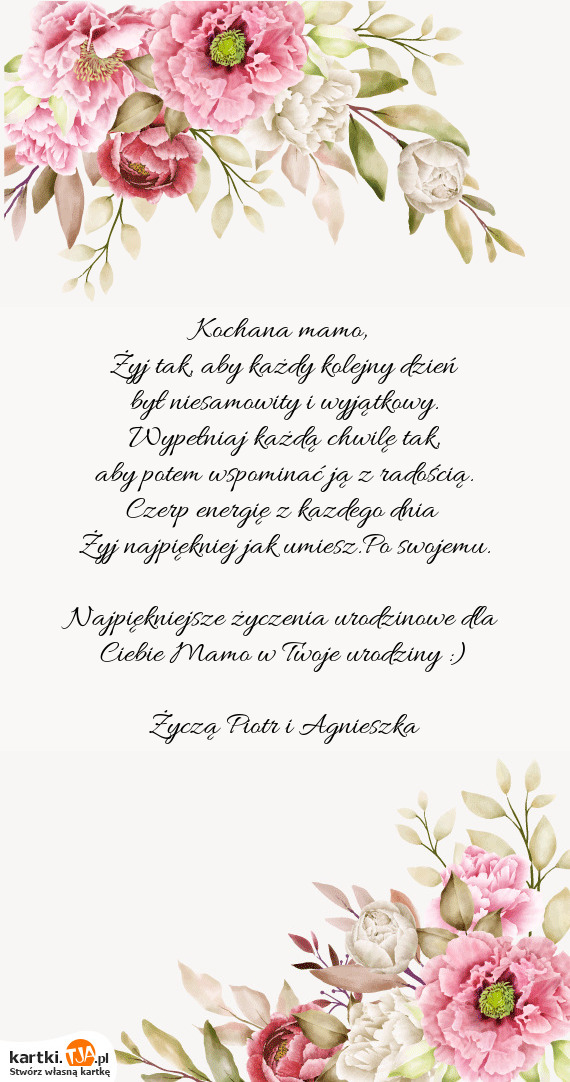 Kochana mamo,
Żyj tak, aby każdy kolejny dzień
był niesamowity i wyjątkowy.
Wypełniaj każdą chwilę tak,
aby potem wspominać ją z radością.
Czerp energię z kazdego dnia
Żyj najpiękniej jak umiesz.Po swojemu.
Najpiękniejsze życzenia urodzinowe dla
Ciebie Mamo w Twoje urodziny :)
Życzą Piotr i Agnieszka
kartki.TJA.pl
Stwórz własną kartkę